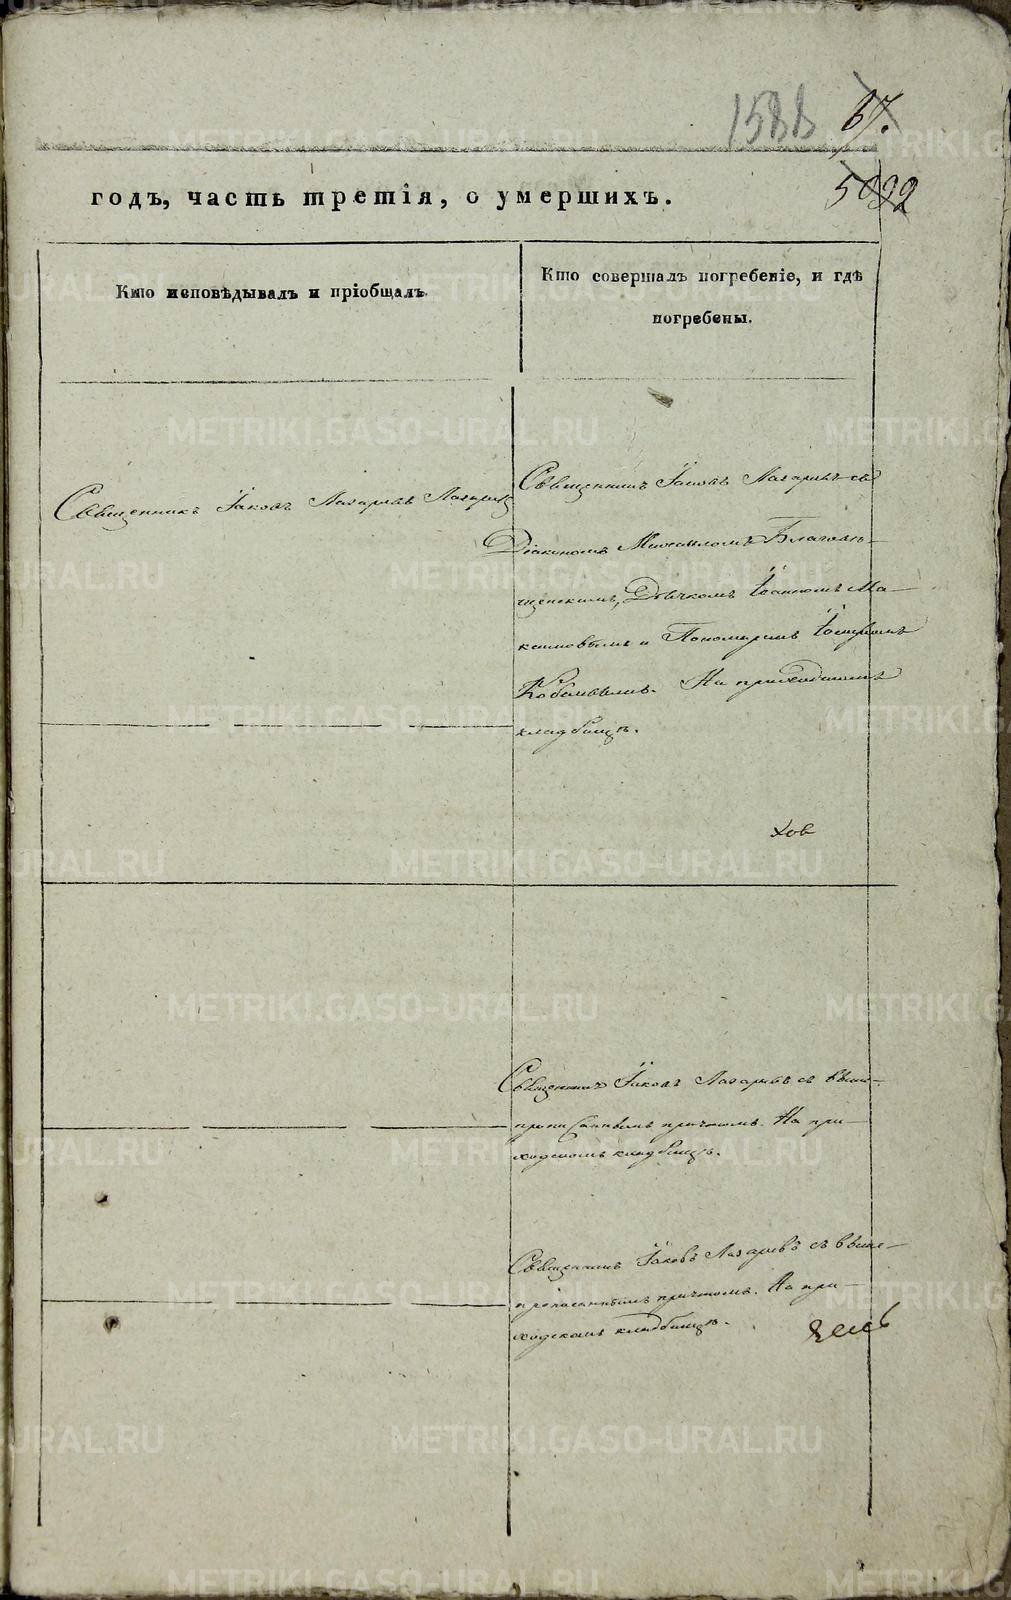 1588
67.
5092
годъ, часть третія, о умершихъ.
Кто исповѣдывалъ и пріобщалъ.
Кто совершалъ погребеніе, и гдѣ
погребены.
Священникъ Іаковъ Лазаревъ
Священникъ Іаковъ Лазаревъ съ
Діакономъ Михаиломъ Благовѣ-
щенскимъ, Дьячкомъ Іоанномъ Ма-
ксимовымъ и Пономаремъ
На приходскомъ
кладбищѣ.
хов
Священникъ Іаковъ Лазаревъ съ выше-
прописаннымъ причтомъ. На при-
ходскомъ кладбищѣ.
Священникъ Іаковъ Лазаревъ съ выше-
прописаннымъ причтомъ. На при-
ходскомъ кладбищѣ.
METRIKI.GASO-URAL.RU